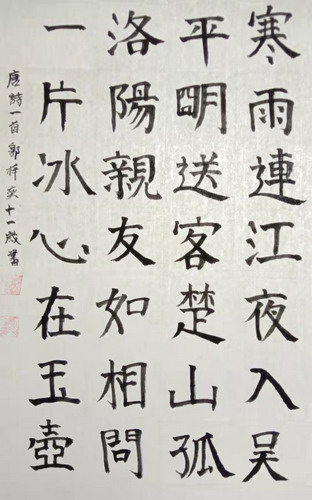 寒雨連江夜入吴
平明送客楚山孤
洛陽親友如相問
一片冰心在玉壺
唐詩一首郭梓奕十一歲書